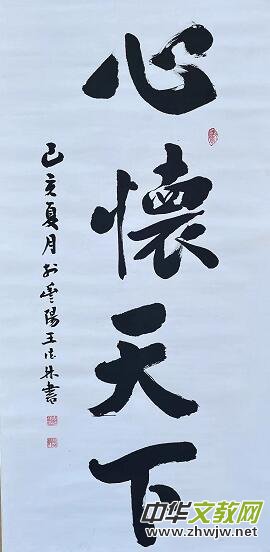 心懷天下
己亥夏月於豐陽王德林書
中华文教网
www.zhwjw.net